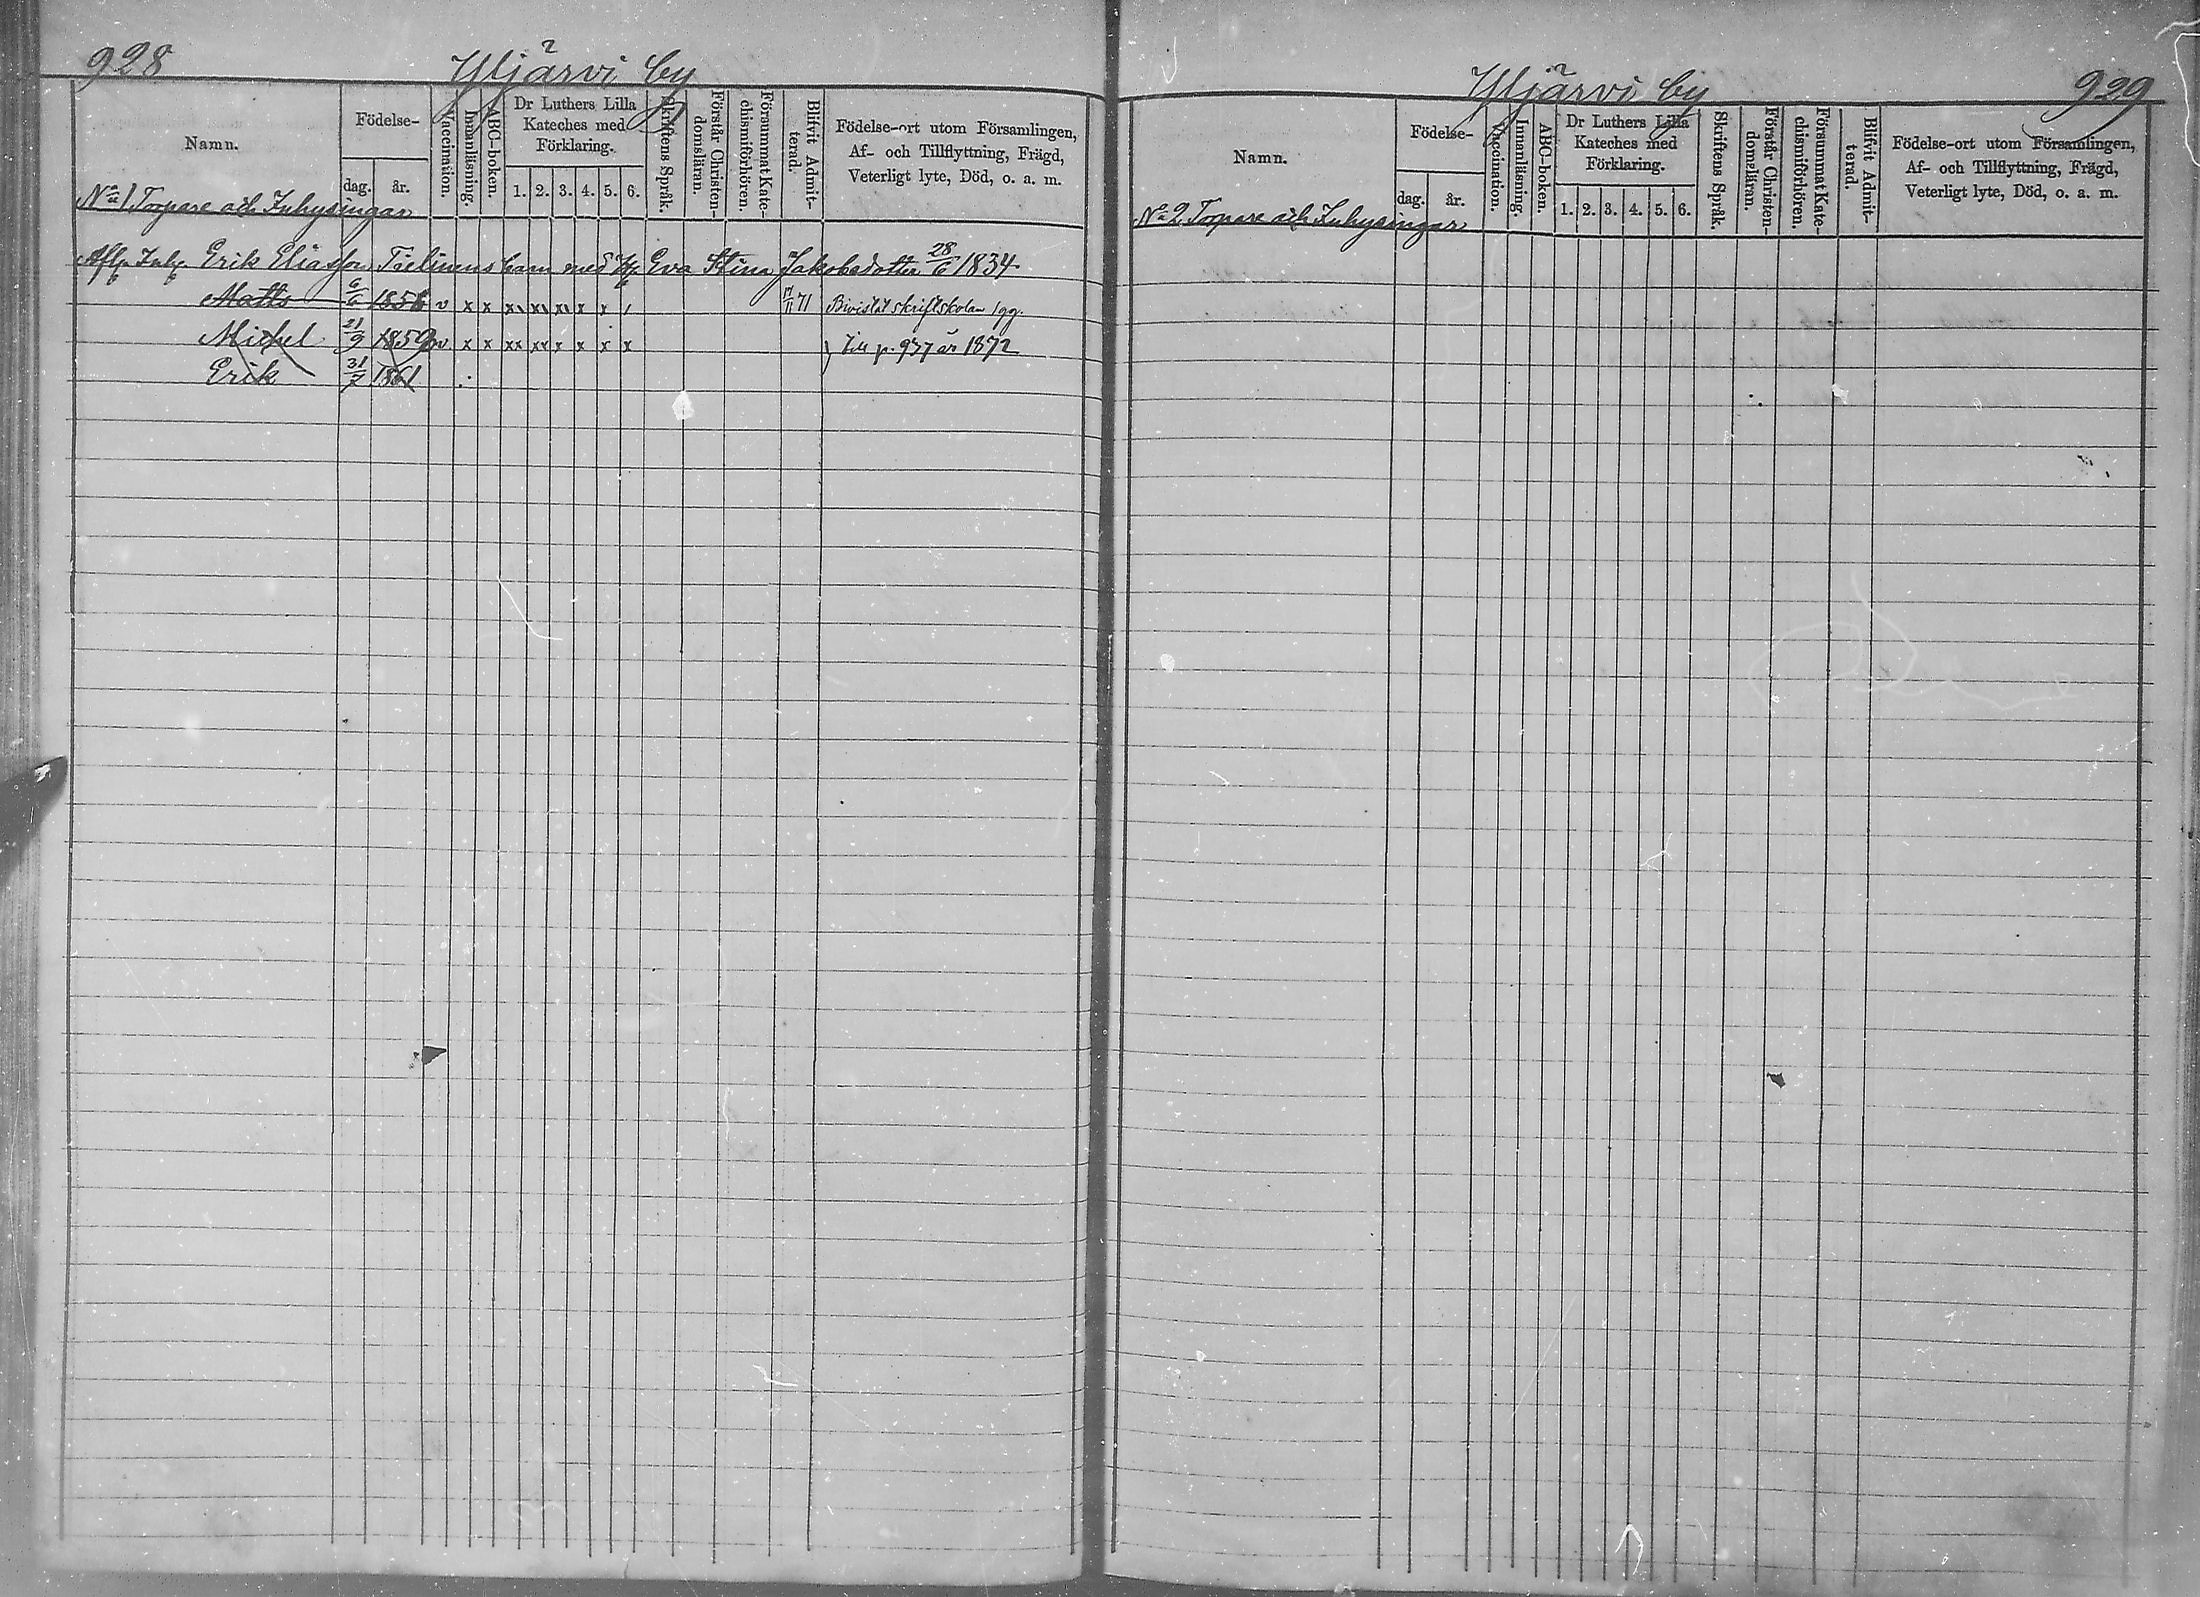 928
Yljärvi by
Namn.
Födelse-
dag.
år.
Vaccination.
Innanläsning.
ABC-boken.
Dr Luthers Lilla
Kateches med
Förklaring.
1. 2. 3. 4. 5. 6.
Skriftens Språk.
Förstår Christen-
domsläran.
Försummat Kate-
chismiförhören.
Blifvit Admit-
terad.
Födelse-ort utom Församlingen,
Af- och Tillflyttning, Frägd,
Veterligt lyte, Död, o. a. m.
No 1 Torpare och Inhysingar
Afl. Inh. Erik Eliasson barn med H. Eva Stina Jakobsdotter 28/6 1834
Matts 6/6 1856 v x x x x x x x 71 Bivistat skriftskolan 1 gg.
Michel 21/9 1859 v x x xx xx x x x x } Till p. 937 år 1872
Erik 31/7 1861
929
Yljärvi by
Namn.
Födelse-
dag.
år.
Vaccination.
Innanläsning.
ABC-boken.
Dr Luthers Lilla
Kateches med
Förklaring.
1. 2. 3. 4. 5. 6.
Skriftens Språk.
Förstår Christen-
domsläran.
Försummat Kate-
chismiförhören.
Blifvit Admit-
terad.
Födelse-ort utom Församlingen,
Af- och Tillflyttning, Frägd,
Veterligt lyte, Död, o. a. m.
No 2 Torpare och Inhysingar